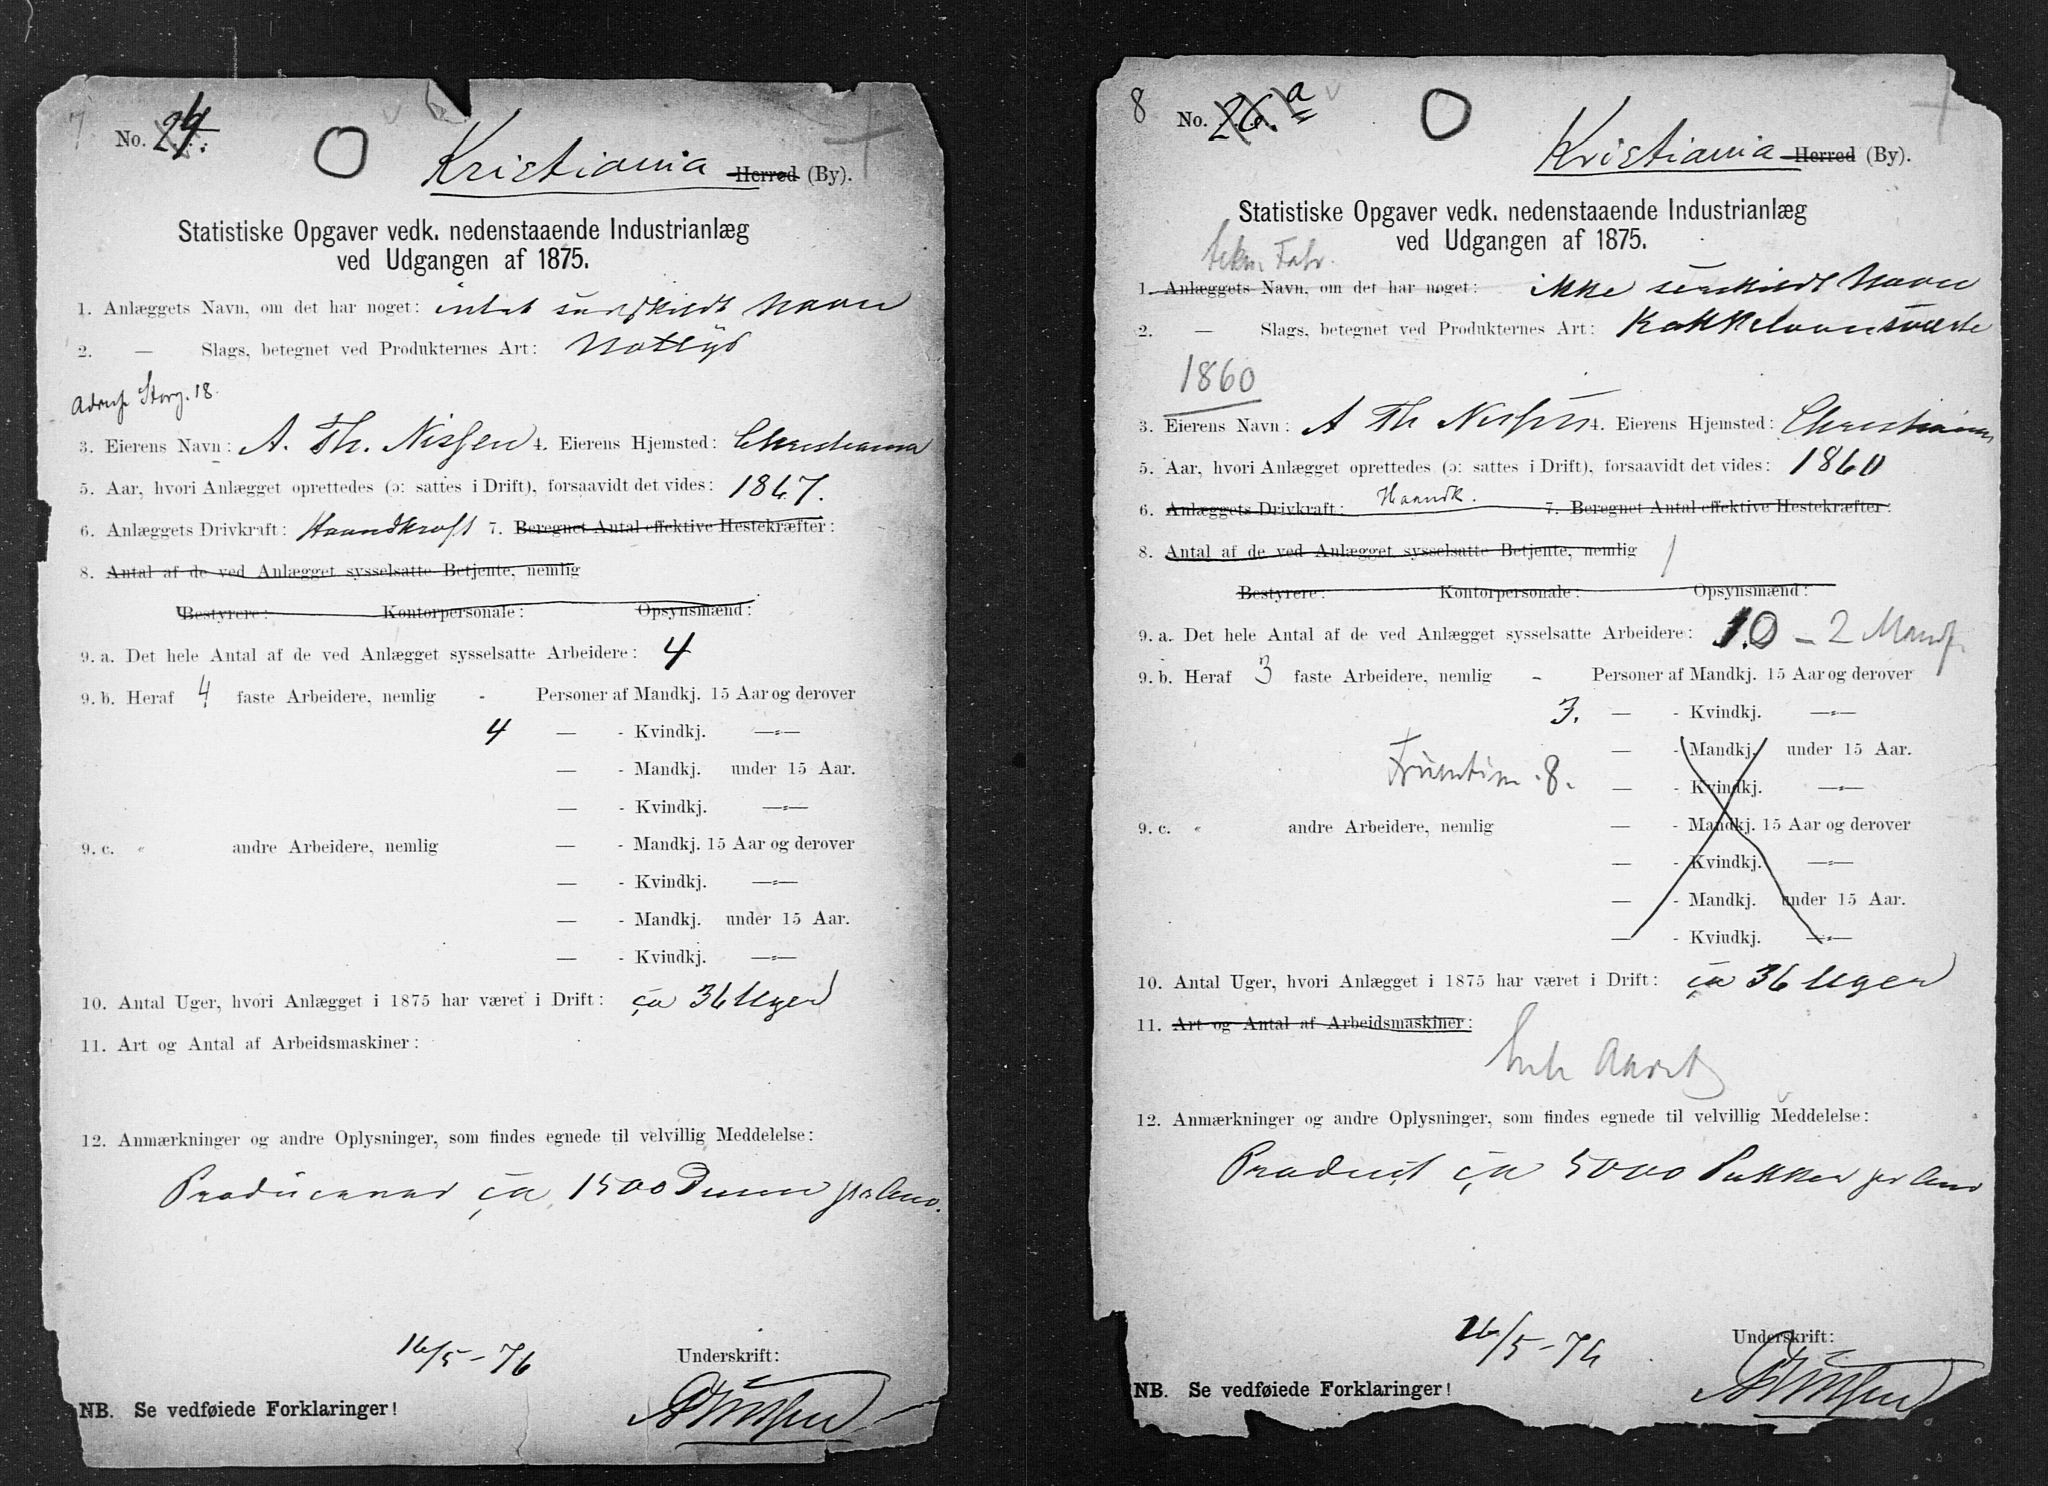 7
No. 24.
Kristiania Herred (By).
Statistiske Opgaver vedk. nedenstaaende Industrianlæg
ved Udgangen af 1875.
1. Anlæggets Navn, om det har noget: intet særskildt Navn
2. — Slags, betegnet ved Produkternes Art: Natlys
Adresse Storg. 18.
3. Eierens Navn: A. Th. Nissen 4. Eierens Hjemsted: Christiania
5. Aar, hvori Anlægget oprettedes (ɔ: sattes i Drift), forsaavidt det vides: 1867.
6. Anlæggets Drivkraft: Haandkraft 7. Beregnet Antal effektive Hestekræfter:
8. Antal af de ved Anlægget sysselsatte Betjente, nemlig
Bestyrere: Kontorpersonale: Opsynsmænd:
9. a. Det hele Antal af de ved Anlægget sysselsatte Arbeidere: 4
9. b. Heraf 4 faste Arbeidere, nemlig - Personer af Mandkj. 15 Aar og derover
4 — - Kvindkj. —»—
— - Mandkj. under 15 Aar.
— - Kvindkj. —»—
9. c. " andre Arbeidere, nemlig — - Mandkj. 15 Aar og derover
— - Kvindkj. —»—
— - Mandkj. under 15 Aar.
— - Kviudkj. —»—
10. Antal Uger, hvori Anlægget i 1875 har været i Drift: ca 36 Uger
11. Art og Antal af Arbeidsmaskiner:
12. Anmærkninger og andre Oplysninger, som findes egnede til velvillig Meddelelse:
Producerer ca 1500 Dusin pr Anno.
16/5-76
Underskrift:
NB. Se vedføiede Forklaringer!
A Th Nissen
8
No. 26. a
Kristiania Herred (By).
Statistiske Opgaver vedk. nedenstaaende Industrianlæg
ved Udgangen af 1875.
tekn. Fabr.
1. Anlæggets Navn, om det har noget: ikke særskildt Navn
2. — Slags, betegnet ved Produkternes Art: Kakkelovnsværte
1860
3. Eierens Navn: A Th Nissen 4. Eierens Hjemsted: Christiania
5. Aar, hvori Anlægget oprettedes (ɔ: sattes i Drift), forsaavidt det vides: 1860
6. Anlæggets Drivkraft: Haandk. 7. Beregnet Antal effektive Hestekræfter:
8. Antal af de ved Anlægget sysselsatte Betjente, nemlig 1
Bestyrere: Kontorpersonale: Opsynsmænd:
9. a. Det hele Antal af de ved Anlægget sysselsatte Arbeidere: 10 - 2 Mandf.
9. b. Heraf 3 faste Arbeidere, nemlig - Personer af Mandkj. 15 Aar og derover
3. — - Kvindkj. —»—
— - Mandkj. under 15 Aar.
Fruentim. 8. — - Kvindkj. —»—
9. c. " andre Arbeidere, nemlig — - Mandkj. 15 Aar og derover
— - Kvindkj. —»—
— - Mandkj. under 15 Aar.
— - Kviudkj. —»—
10. Antal Uger, hvori Anlægget i 1875 har været i Drift: ca 36 Uger
11. Art og Antal af Arbeidsmaskiner:
hele Aaret
12. Anmærkninger og andre Oplysninger, som findes egnede til velvillig Meddelelse:
Product ca 5000 Pakker pr Anno
16/5-76
Underskrift:
NB. Se vedføiede Forklaringer!
A Th Nissen